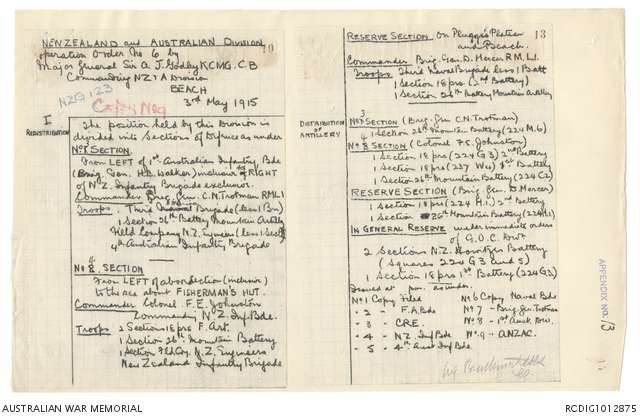 NEW ZEALAND and AUSTRALIAN DIVISION
operation order No 6 by
Major General Sir A. J. Godley KCMG. C.B
Commanding NZ & A Division
BEACH
3rd May 1915
NZG 123
I
REDISTRIBUTION
The position held by this Division is
divided into Sections of Defence as under
No 3 SECTION.
From LEFT of 1st Australian Infantry Bde
(Brig. Gen. H.B. Walker) inclusive RIGHT
of N.Z. Infantry Brigade exclusive.
Commander Brig. Gen. C.N. Trotman RMLI
Troops. 1 Third Naval Brigade (less 1 Bn)
1 Section 26th Battery Mountain Artillery
Field Company N.Z. Engineers (less 1 Sect)
4th Australian Infantry Brigade
No 4. SECTION
From LEFT of above section (inclusive)
to the sea about FISHERMAN'S HUT.
Commander Colonel F.E. Johnston
Commanding N.Z. Inf Bde.
Troops 2 Sections 18 pro F. Art.
1 Section 26th Mountain Battery
1 Section Fld Coy. N.Z. Engineers
New Zealand Infantry Brigade
13
RESERVE SECTION On Plugge's Plateau
and Beach.
Commander Brig. Gen. D. Mercer R.M.L.I.
Troops Third Naval Brigade less 1 Batt
1 Section 18 pro (2nd Battery)
1 Section 26th Battery Mountain Artillery
DISTRIBUTION
OF
ARTILLERY
No 3 Section (Brig-Gen C.N. Trotman)
1 Section 26th Mountain Battery (224 M.6)
No 4 SECTION (Colonel F.E. Johnston)
1 Section 18 pro (224 G 3) 2nd Battery
1 Section 18 pro (237 W4) 1st Battery
1 Section 26th Mountain Battery (224 C2)
RESERVE SECTION (Brig. Gen. D. Mercer)
1 Section 18 pro (224 H.1) 2nd Battery
1 Section 26th Mountain Battery (224 H.1)
IN GENERAL RESERVE under immediate orders
of G.O.C. Divn
2 Sections N.Z. Howitzer Battery
(Squares 224 G3 and 5)
1 Section 18 pro 1st Battery (224 G3)
Issued at pm. as under.
No 1 Copy Filed No 6 Copy Naval Bde
- 2 - F.A. Bde No 7 - Brig. Gen Trotman
- 3 - CRE. No 8 - 1st Aust Div.
- 4 - NZ. Inf Bde No 9 - ANZAC.
- 5 - 4th Aust Inf Bde
APPENDIX No. 13
AUSTRALIAN WAR MEMORIAL
RCDIG1012875